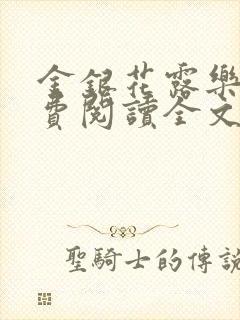 金銀花露樂
費閱讀全文
聖騎士的傳說